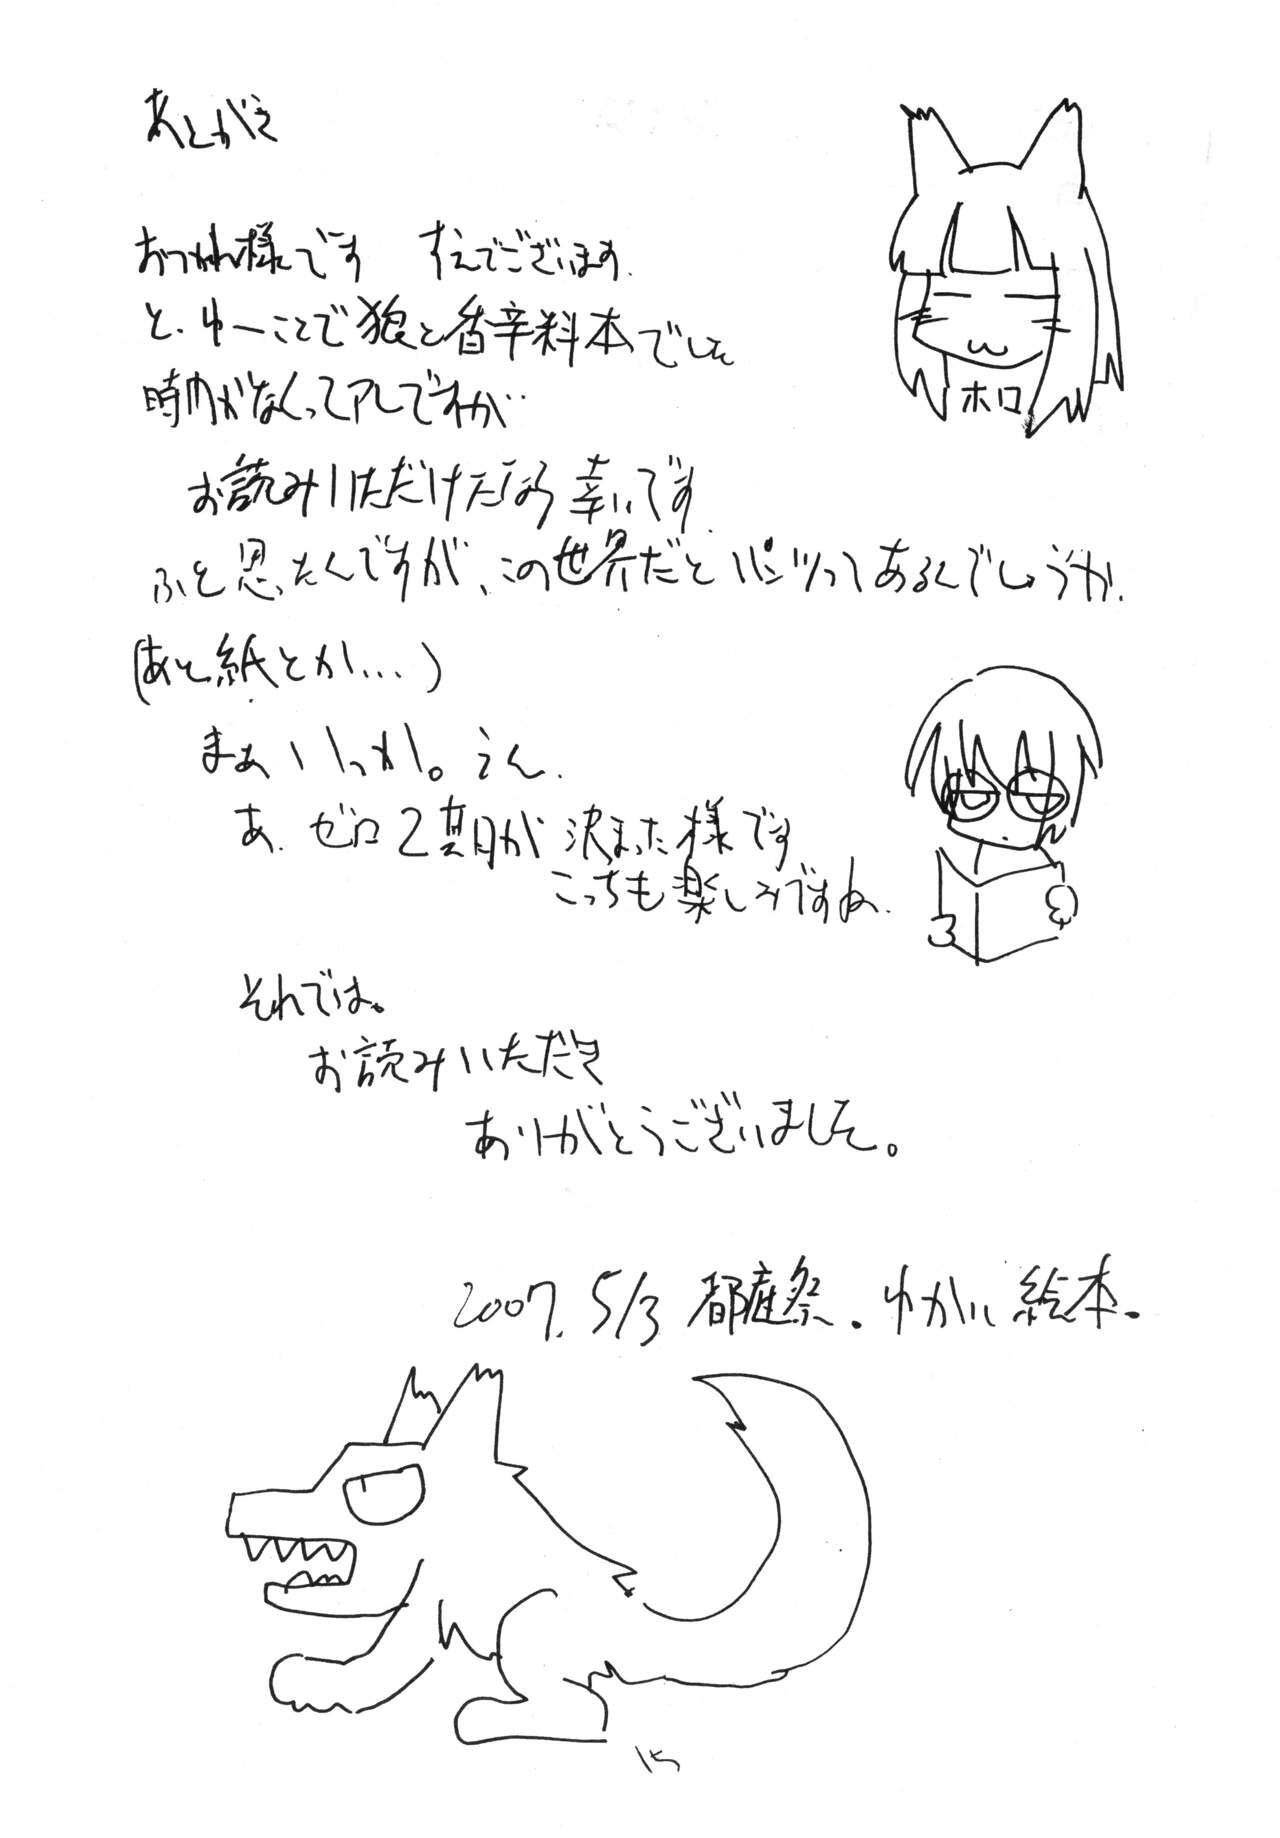 あとがき
おつかれ様です すえでございます.
と、ゆーことで狼と香辛料本でした
時間がなくってアレですが…
お読みいただけたなら幸いです.
ふと思ったんですが、この世界だとパンツってあるんでしょうか.
(あと紙とか…)
まぁいっか。うん.
あ、ゼロ2期が決まった様です
こっちも楽しみですね.
それでは。
お読みいただき
ありがとうございました。
2007. 5/3 都庭祭. ゆかい絵本.
ホロ
15